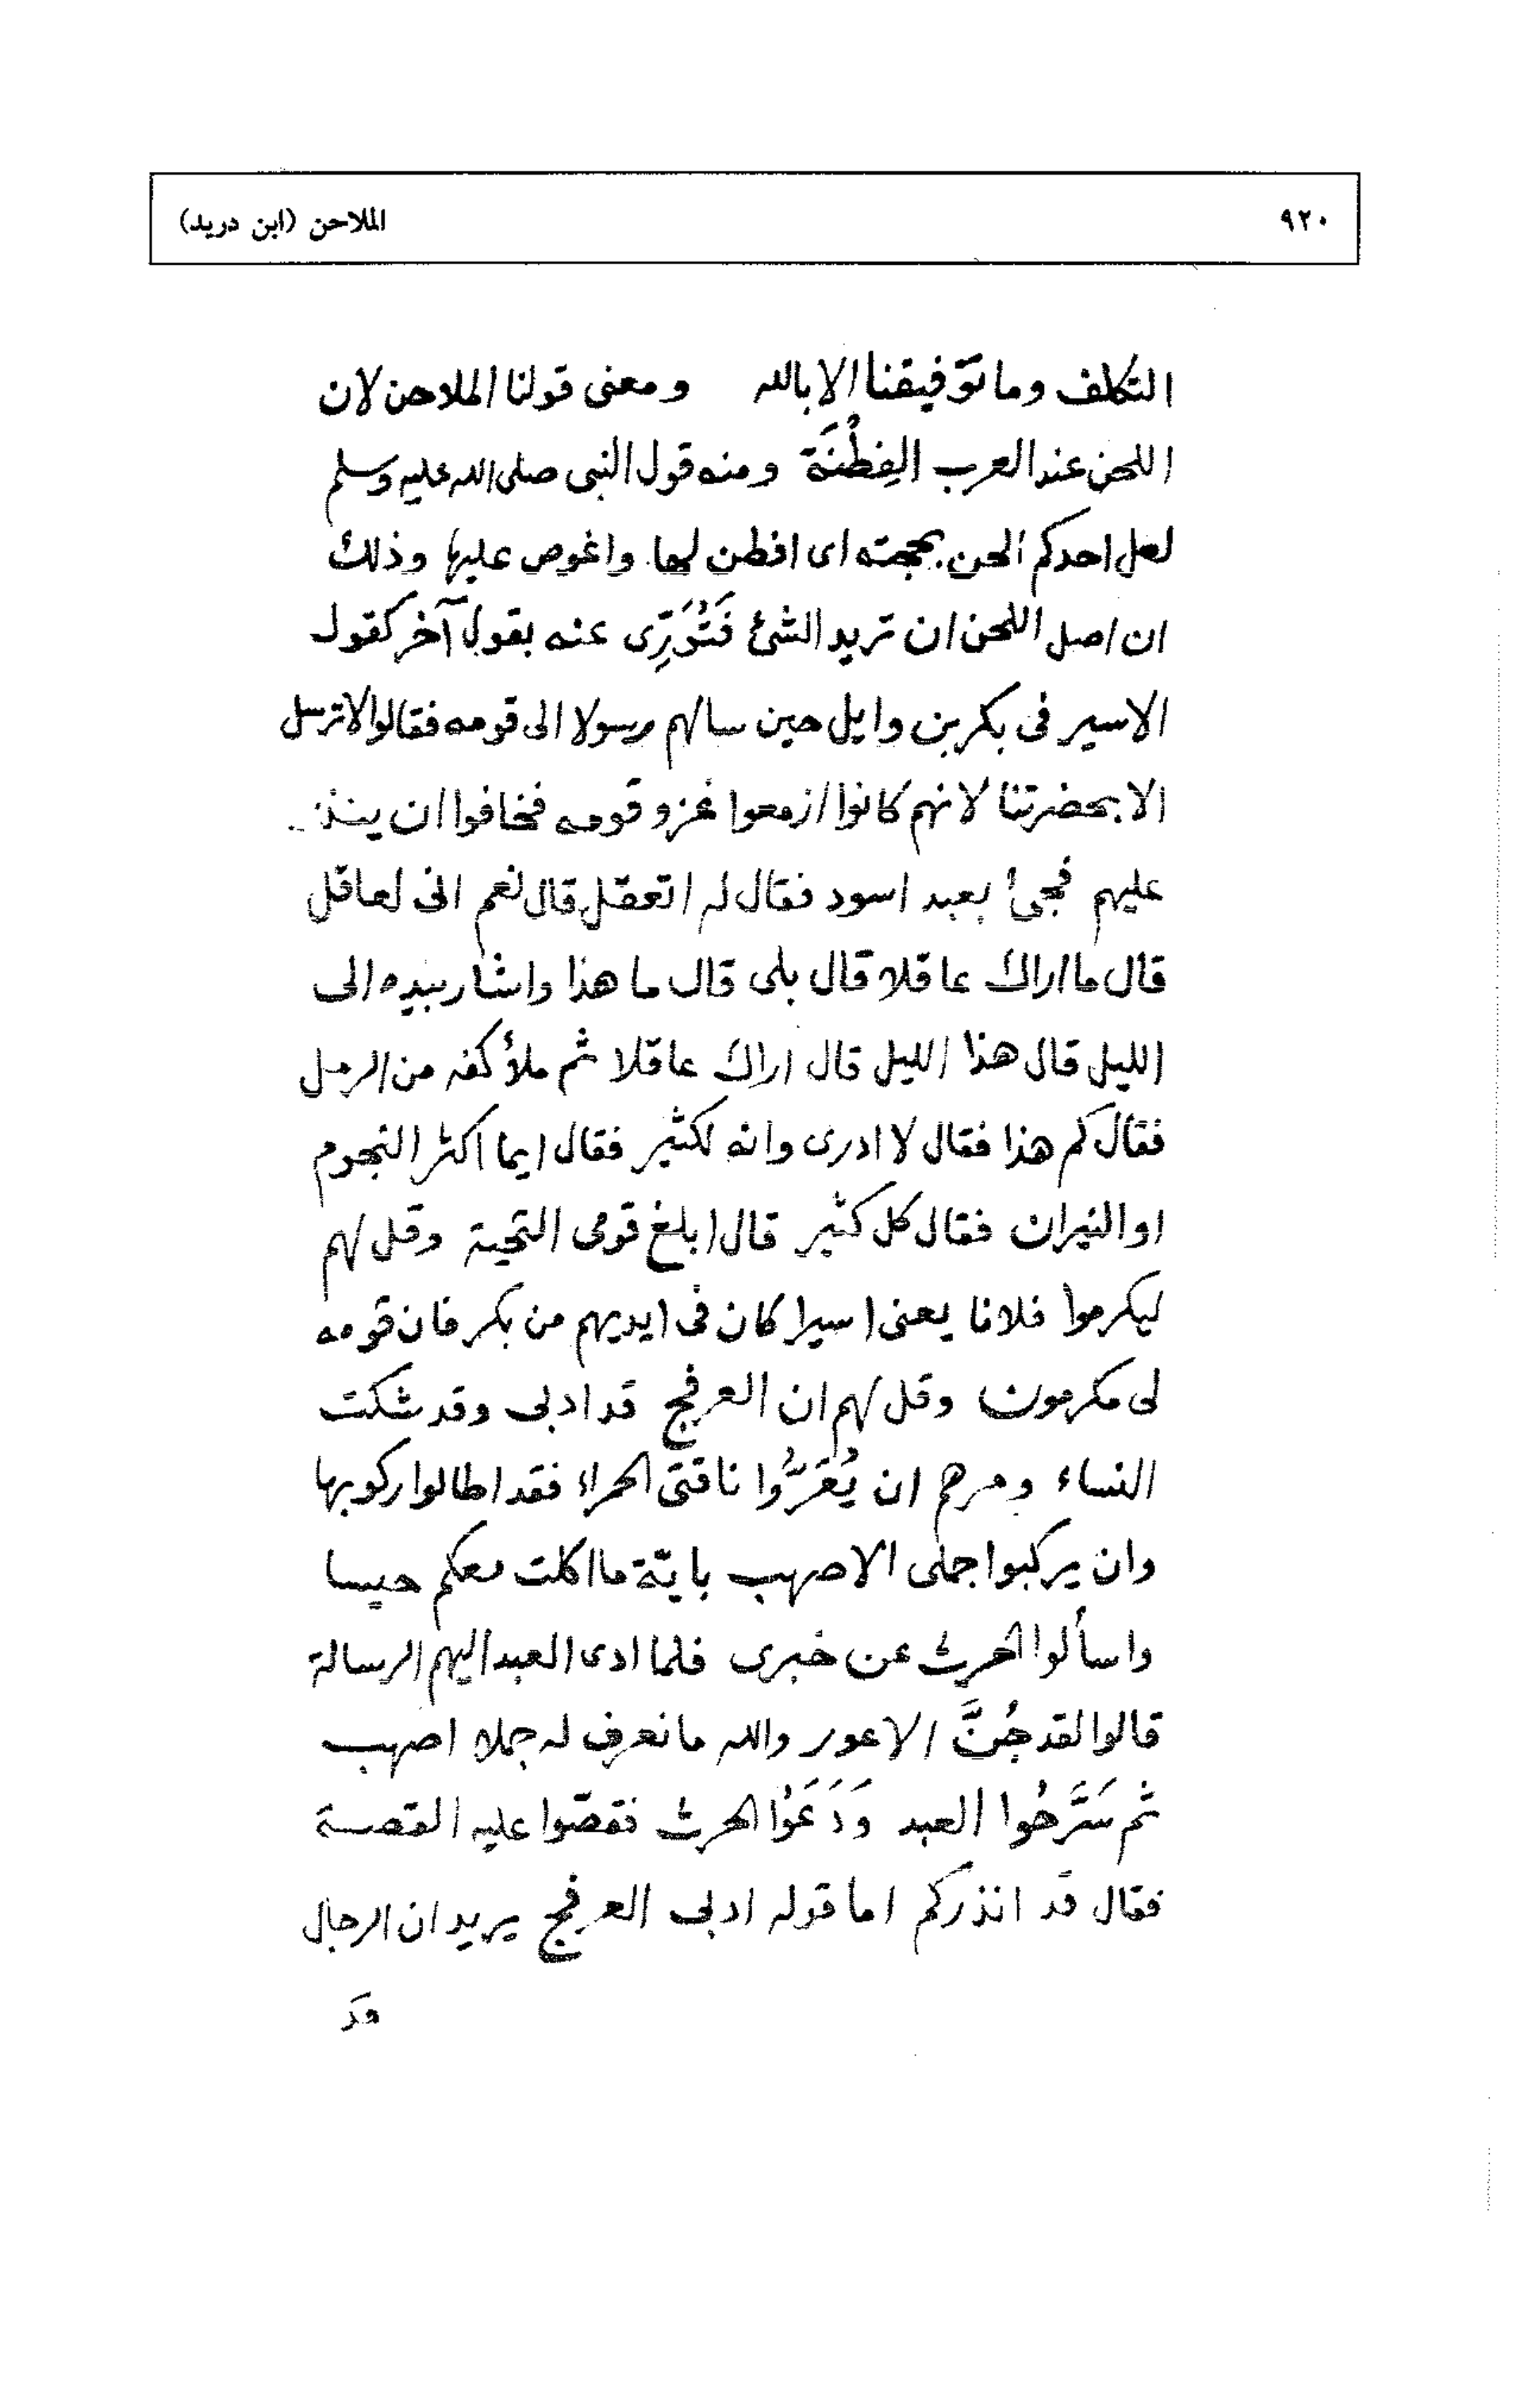 ٩٢٠
الملاحن (ابن دريد)
التكلف وما توَفيقنا الا بالله ومعنى قولنا الملاحن لان
اللحن عند العرب الفِطْنَة ومنه قول النبى صلى الله عليه وسلم
لعل احدكم الحن بحجته اى افطن لها واغوص عليها وذلك
ان اصل اللحن ان تريد الشئ فَتُوَرِّى عنه بقول آخر كقول
الاسير فى بكر بن وايل حين سالهم رسولا الى قومه فقالوا لا ترسل
الا بحضرتنا لانهم كانوا ازمعوا غزو قومه فخافوا ان
عليهم فجئ بعبد اسود فقال له اتعقل قال نعم انى لعاقل
قال ما اراك عاقلا قال بلى قال ما هذا واشار بيده الى
الليل قال هذا الليل قال اراك عاقلا ثم ملأ كفه من الرمل
فقال كم هذا فقال لا ادرى وانه لكثير فقال ايما اكثر النجوم
او النيران فقال كل كثير قال ابلغ قومى التحية وقل لهم
ليكرموا فلانا يعنى اسيرا كان فى ايديهم من بكر فان قومه
لى مكرمون وقل لهم ان العرفج قد ادبى وقد شكت
النساء ومرهم ان يُعَرُّوا ناقتى الحمراء فقد اطالوا ركوبها
وان يركبوا جملى الاصهب باية ما اكلت معكم حيسا
واسألوا الحرث عن خبرى فلما ادى العبد اليهم الرسالة
قالوا لقد جُنَّ الاعور والله ما نعرف له جملا اصهب
ثم سَرَّحُوا العبد وَدَعَوُا الحرث فقصّوا عليه القصة
فقال قد انذركم اما قوله ادبى العرفج يريد ان الرجال
قد